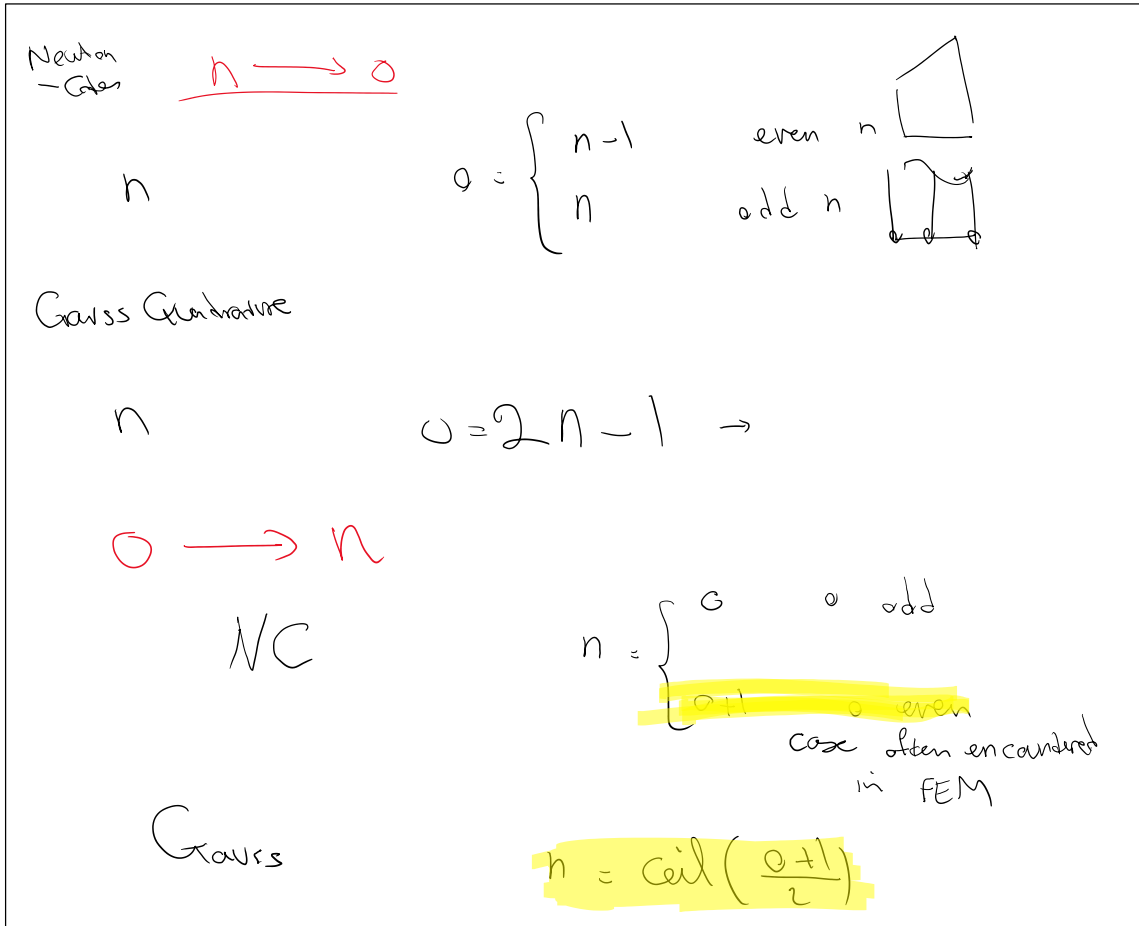 Newton
- Cotes
n → o
n
o = { n-1 even n
n odd n
Gauss Quadrature
n o = 2n - 1 →
o → n
NC
n = { o o odd
o+1 o even
case often encountered
in FEM
Gauss n = ceil( (o+1)/2 )